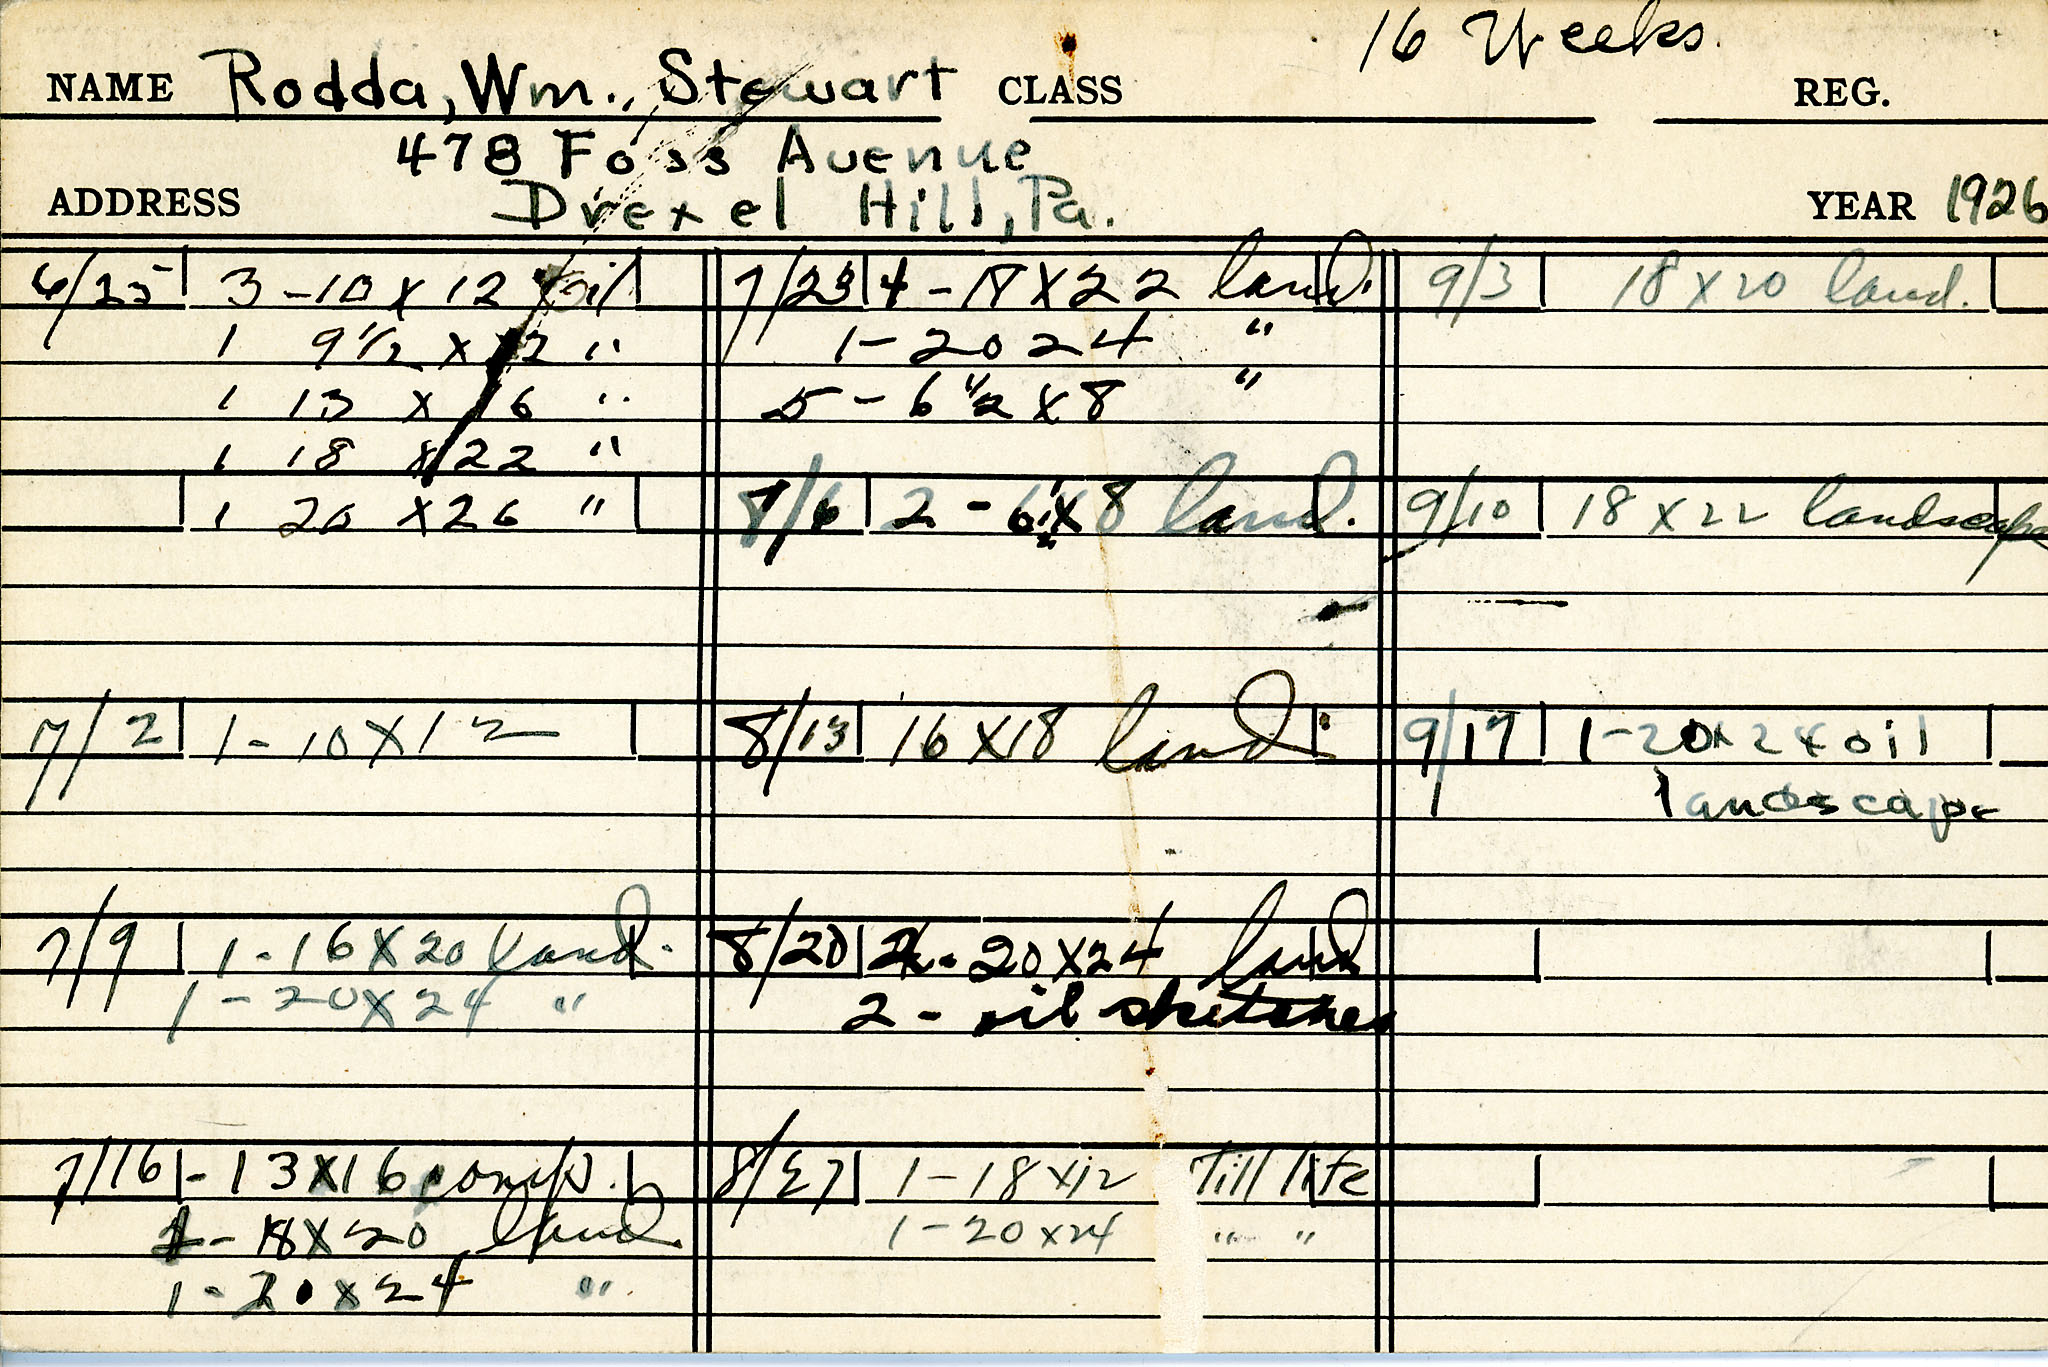 16 Weeks.
NAME Rodda, Wm. Stewart CLASS REG.
478 Foss Avenue
ADDRESS Drexel Hill, Pa. YEAR 1926
6/25 3 - 10 x 12 oil
1 9 1/2 x 12 "
1 13 x 16 "
1 18 x 22 "
1 20 x 26 "
7/2 1 - 10 x 12
7/9 1 - 16 x 20 land.
1 - 20 x 24 "
7/16 - 13 x 16 comp.
- 18 x 20 land
1 - 20 x 24 "
7/23 4 - 18 x 22 land.
1 - 20 24 "
5 - 6 1/2 x 8 "
8/6 2 - 6 1/2 x 8 land.
8/13 16 x 18 land.
8/20 2 - 20 x 24 land
2 - oil sketches
8/27 1 - 18 x 12 Till lite
1 - 20 x 24 " "
9/3 18 x 20 land.
9/10 18 x 22 landscape
9/17 1 - 20 x 24 oil
landscape